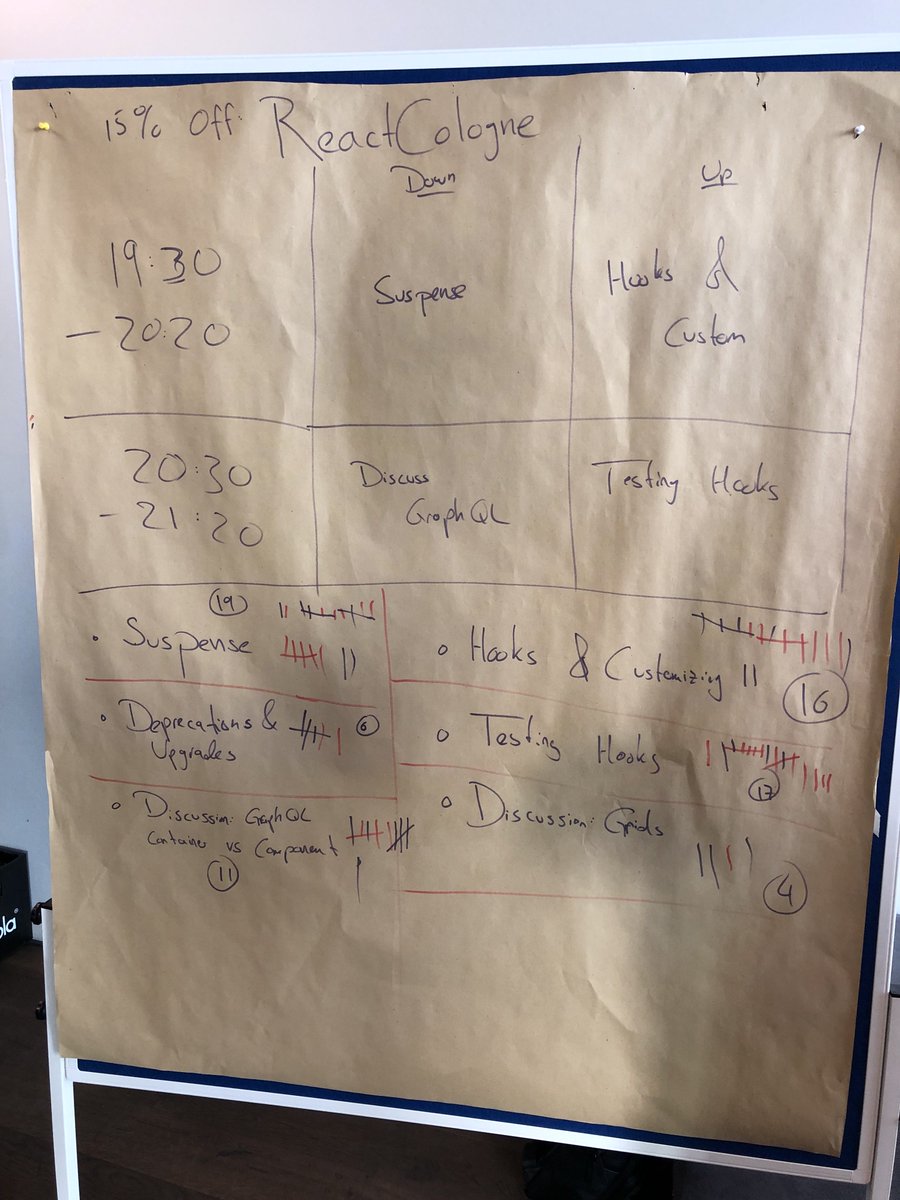 15% Off: ReactCologne
Down
Up
19:30
- 20:20
Suspense
Hooks &
Custom
20:30
- 21:20
Discuss
GraphQL
Testing Hooks
19
• Suspense
• Deprecations & 6
Upgrades
• Discussion: GraphQL
Container vs Component
11
• Hooks & Customizing
16
• Testing Hooks
17
• Discussion: Grids
4
ola®